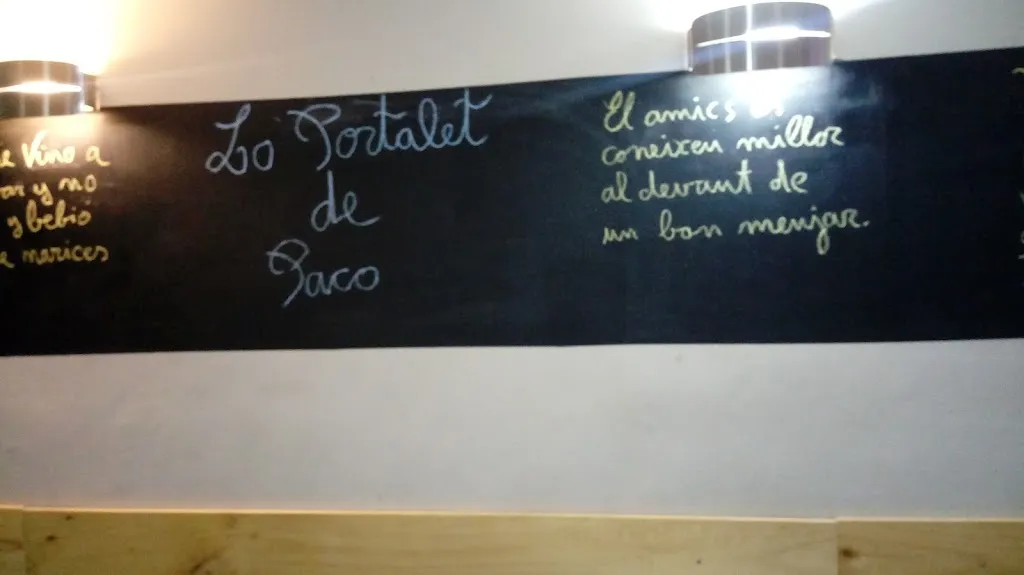 Vino a
y no
y bebió
marices
Lo Portalet
de
Paco
El amics
coneixen millor
al devant de
un bon menjar.